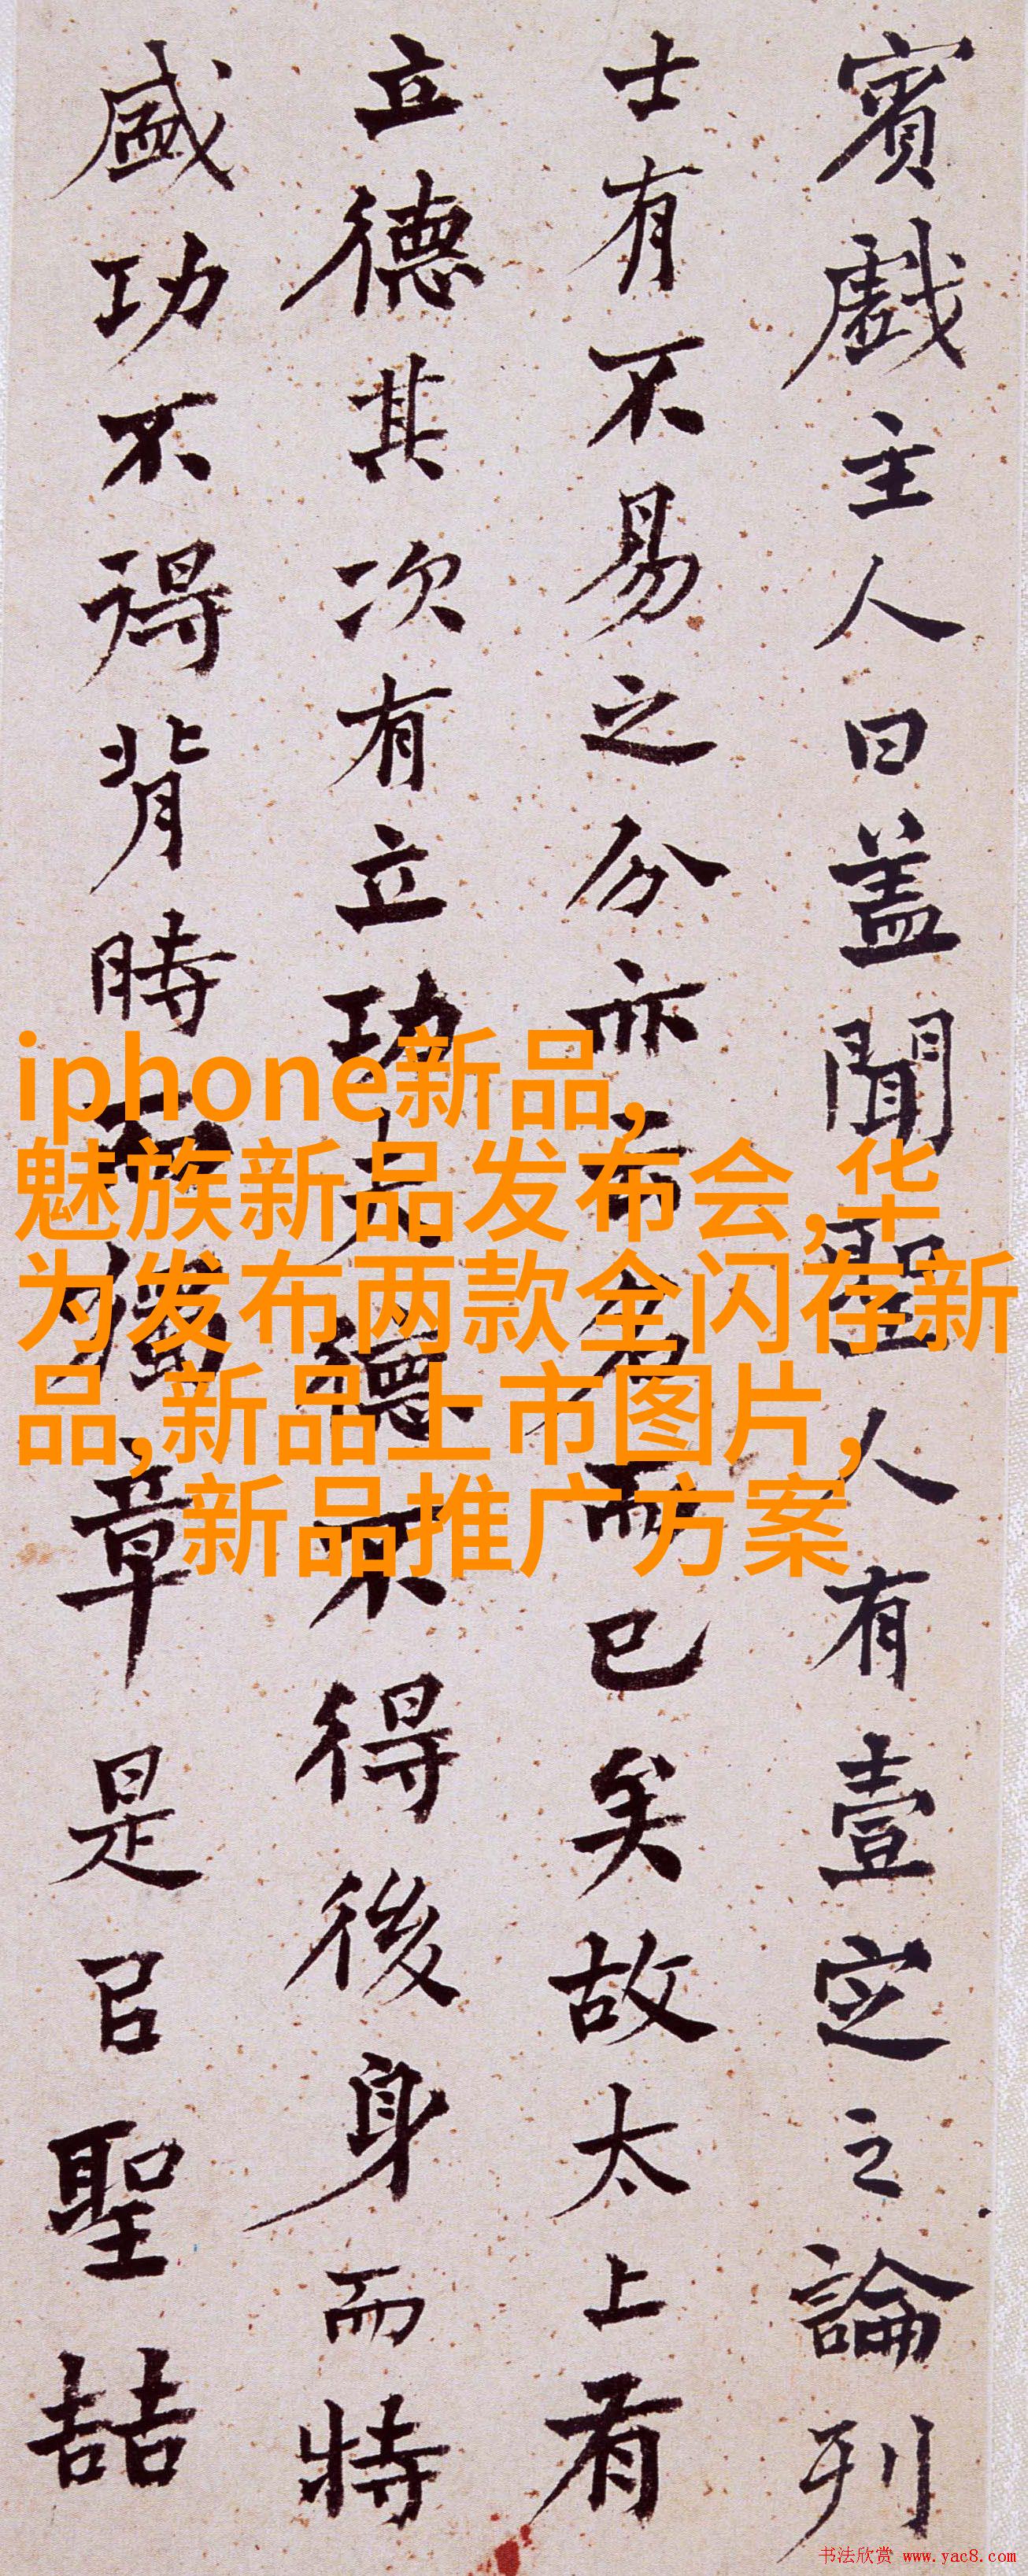 賓戲主人曰盖聞聖人有壹定之論列
士有不易之分亦云名而已矣故太上有
立德其次有立功夫德不得後身而特
盛功不得背時而獨章是㠯聖喆
iphone新品,
魅族新品发布会,华
为发布两款全闪存新
品,新品上市图片,
新品推广方案
书法欣赏 www.yac8.com